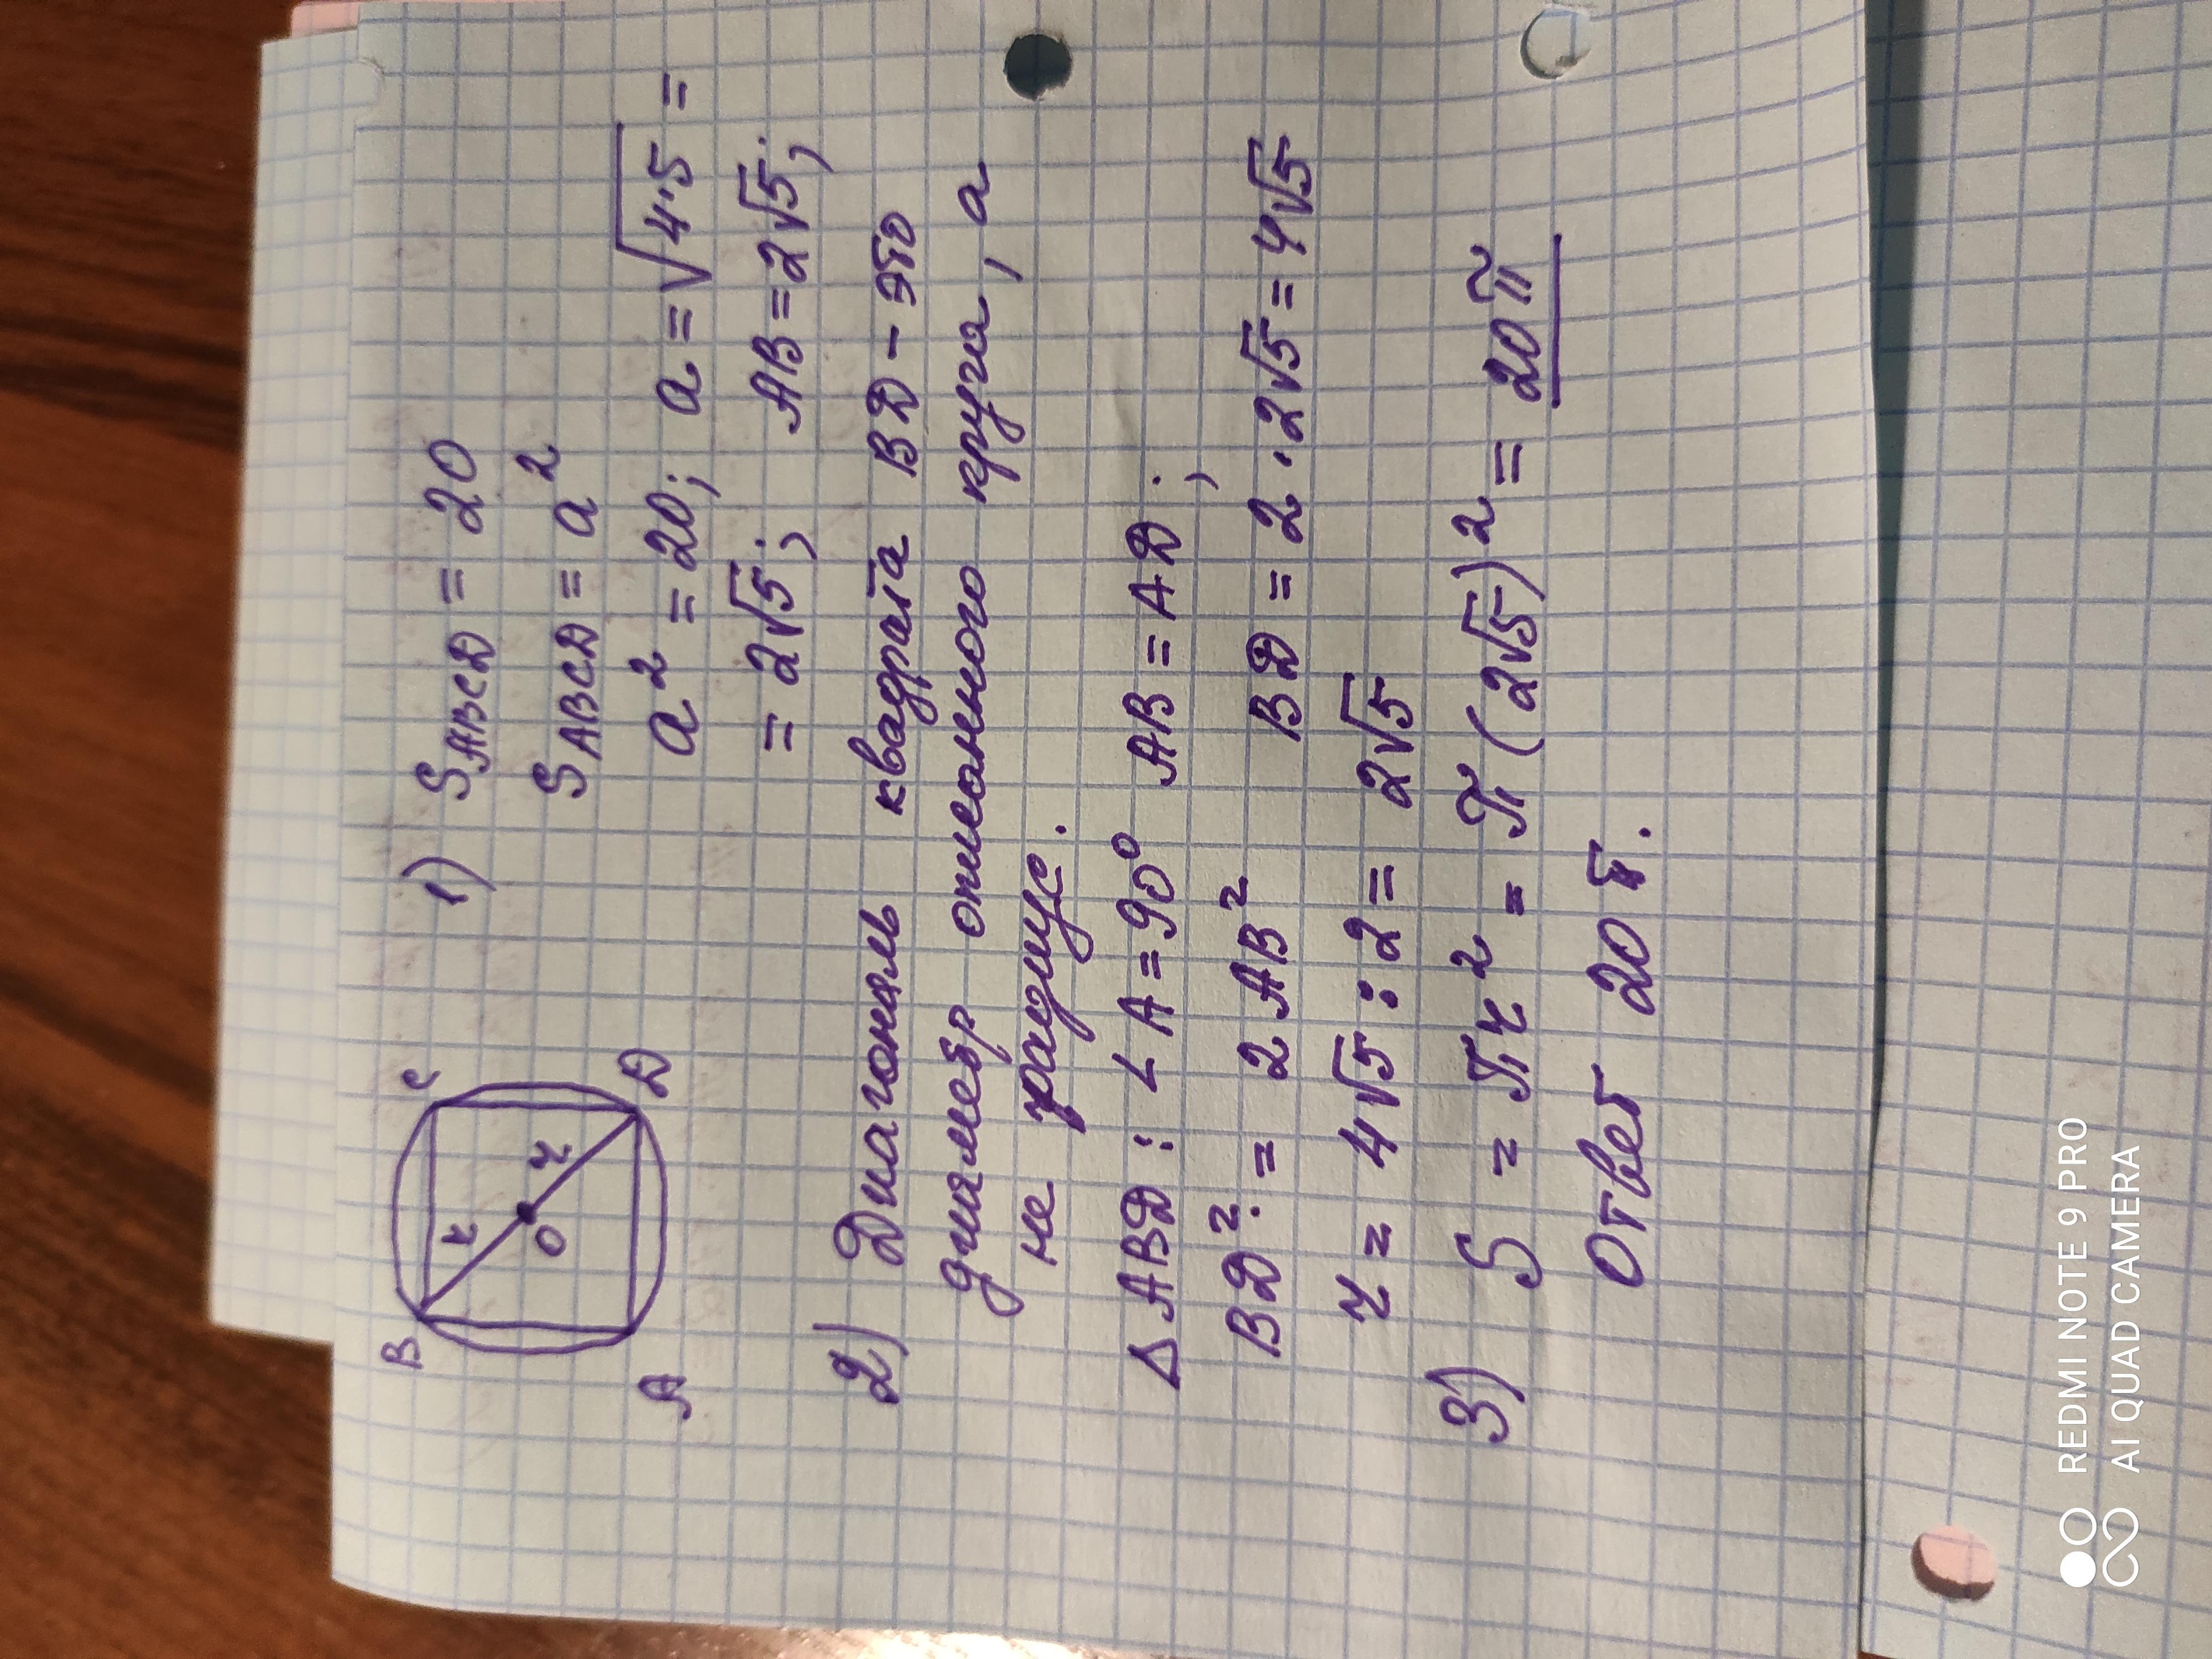 B
C
r
r
O
A
D
1) S ABCD = 20
S ABCD = a²
a² = 20; a = √4·5 =
= 2√5; AB = 2√5;
2) Диагональ квадрата BD - это
диаметр описанного круга, а
не радиус.
Δ ABD: ∠A = 90° AB = AD;
BD² = 2AB² BD = 2·2√5 = 4√5
r = 4√5 : 2 = 2√5
3) S = πr² = π(2√5)² = 20π
Ответ 20π.
REDMI NOTE 9 PRO
AI QUAD CAMERA